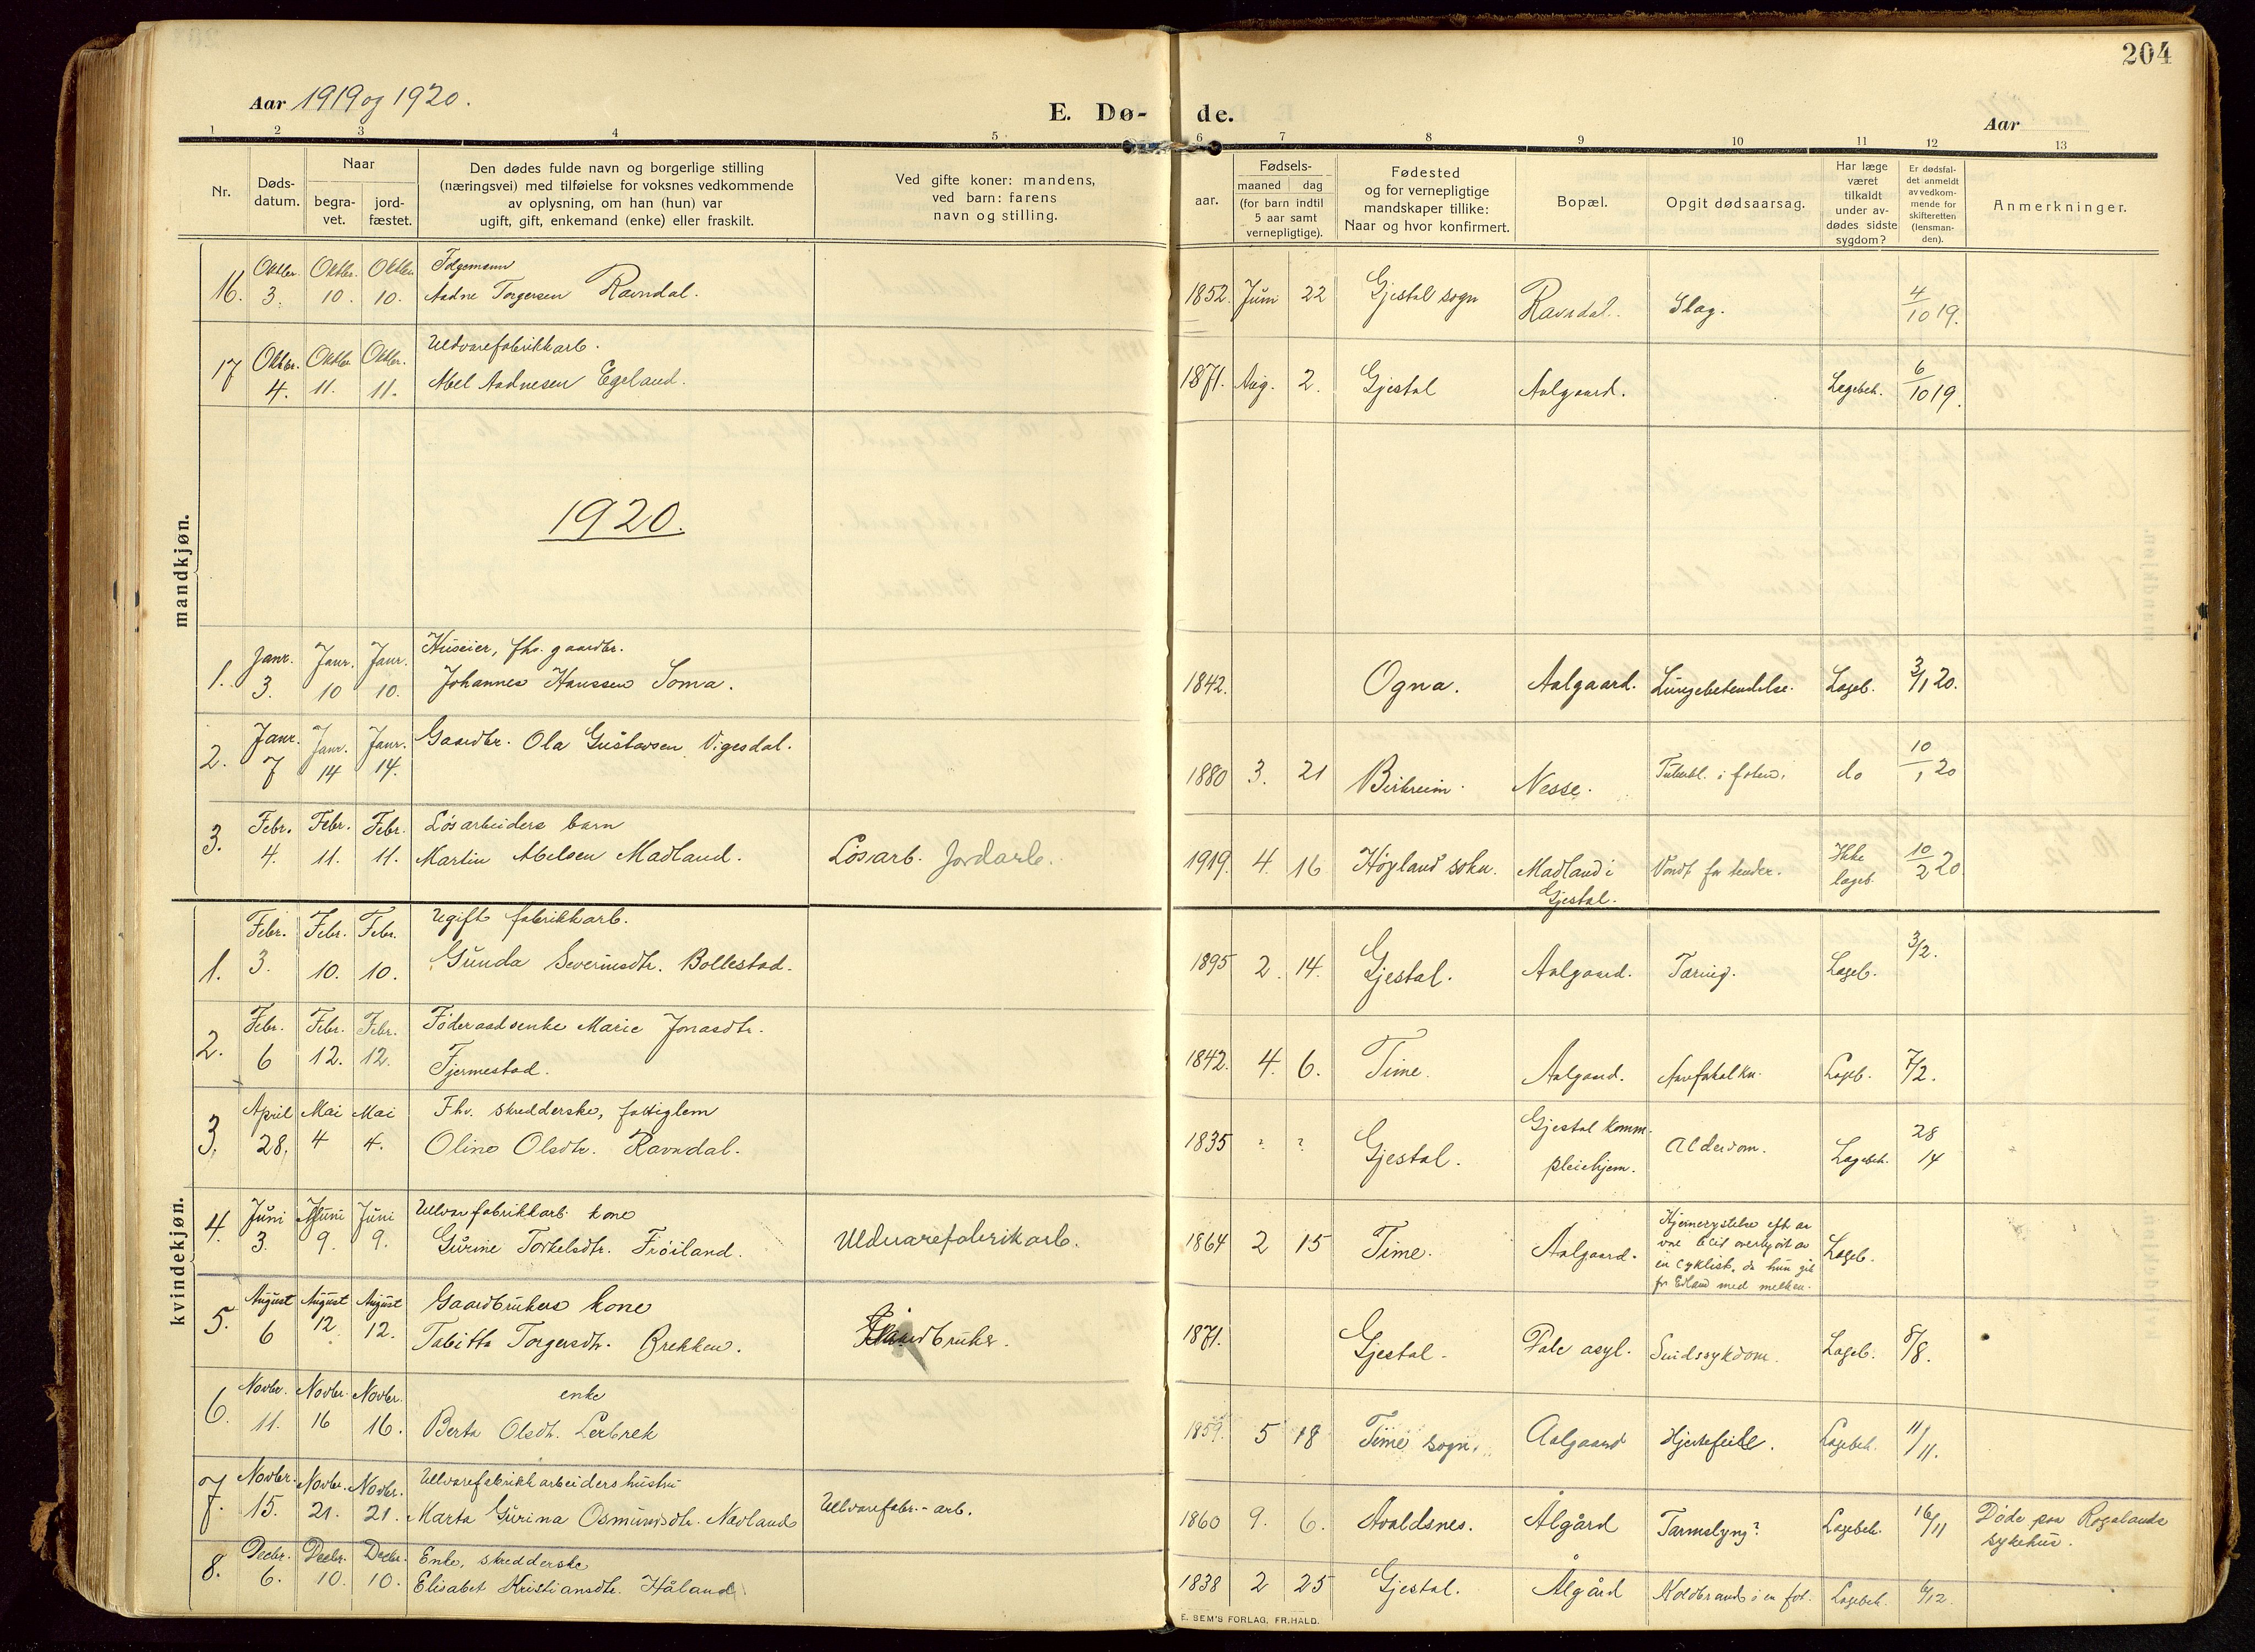 204
Aar 1919 og 1920.
E. Dø- de.
Aar
1 2 3 4 5 6 7 8 9 10 11 12 13
Nr.
Døds-
datum.
Naar
begra-
vet.
jord-
fæstet.
Den dødes fulde navn og borgerlige stilling
(næringsvei) med tilføielse for voksnes vedkommende
av oplysning, om han (hun) var
ugift, gift, enkemand (enke) eller fraskilt.
Ved gifte koner: mandens,
ved barn: farens
navn og stilling.
Fødsels-
aar.
maaned dag
(for barn indtil
5 aar samt
vernepligtige).
Fødested
og for vernepligtige
mandskaper tillike:
Naar og hvor konfirmert.
Bopæl.
Opgit dødsaarsag.
Har læge
været
tilkaldt
under av-
dødes sidste
sygdom?
Er dødsfal-
det anmeldt
av vedkom-
mende for
skifteretten
(lensman-
den).
Anmerkninger.
mandkjøn.
16. Oktbr. 3. Oktbr. 10. Oktbr. 10.
Følgemann
Aadne Torgersen Ravndal.
1852. Juni 22 Gjestal sogn Ravndal. Slag. 4/10 19.
17 Oktbr. 4. Oktbr. 11. Oktbr. 11.
Uldvarefabrikkarb.
Abel Aadnesen Egeland.
1871. Aug. 2. Gjestal Aalgaard. Legebeh. 6/10 19.
1920.
1. Janr. 3. Janr. 10 Janr. 10.
Huseier, fhv. gaardbr.
Johannes Hanssen Soma.
1842. Ogna. Aalgaard. Lungebetendelse. Lageb. 3/1 20.
2. Janr. 7 Janr. 14 Janr. 14.
Gaardbr. Ola Gustavsen Vigesdal.
1880 3. 21 Birkreim. Nesse. Tuberkl. i foten. do 10/1 20
3. Febr. 4. Febr. 11. Febr. 11.
Løsarbeiders barn
Martin Abelsen Madland.
Løsarb. Jordarb.
1919. 4. 16 Høyland sokn. Madland i
Gjestal.
Vondt for tender. Ikke
lageb. 10/2 20.
kvindekjøn.
1. Febr. 3. Febr. 10. Febr. 10.
Ugift fabrikkarb.
Gunda Severinsdtr. Bollestad.
1895 2. 14. Gjestal. Aalgaard. Tæring. Lageb. 3/2.
2. Febr. 6 Febr. 12. Febr. 12.
Føderaadsenke Marie Jonasdtr.
Fjermestad.
1842. 4. 6. Time. Aalgaard. Lageb. 7/2.
3. April 28. Mai 4 Mai 4.
Fhv. skredderske, fattiglem
Oline Olsdtr. Ravndal.
1835 ? ? Gjestal. Gjestal komm.
pleiehjem.
Alderdom. Lagebeh. 28/14
4. Juni 3. Juni 9. Juni 9.
Ullvarefabrikkarb. kone
Gurine Torkelsdtr. Frøiland.
Uldvarefabrikarb.
1864 2 15 Time. Aalgaard.
Hjernerystelse eft. at
være blit overkjørt av
en cyklist, da hun gik
fr Edland med melken.
Lageb.
5. August 6 August 12 August 12.
Gaardbrukers kone
Tabitta Torgersdtr. Brekken.
Gaardbruker.
1871. Gjestal. Dale asyl. Sindssykdom. Lageb. 8/8.
6. Novbr. 11. Novbr. 16 Novbr. 16.
enke
Berta Olsdtr. Lerbrek
1859. 5 18 Time sogn. Aalgaard Hjertefeile. Lagebeh. 11/11.
7. Novbr. 15. Novbr. 21. Novbr. 21.
Ullvarefabrikkarbeiders hustru
Marta Gurina Osmundsdtr. Nævland
Ullvarefabr.-arb.
1860 9. 6. Avaldsnes. Ålgård Tarmslyng? Lagebeh. 16/11 Døde paa Rogalands
sykehus.
8. Decbr. 6. Decbr. 10. Decbr. 10.
Enke, skredderske
Elisabet Kristiansdtr. Håland
1838 2 25 Gjestal. Ålgård Koldbrand i en fot. Lagebeh. 6/12.
E. SEM'S FORLAG, FR.HALD.